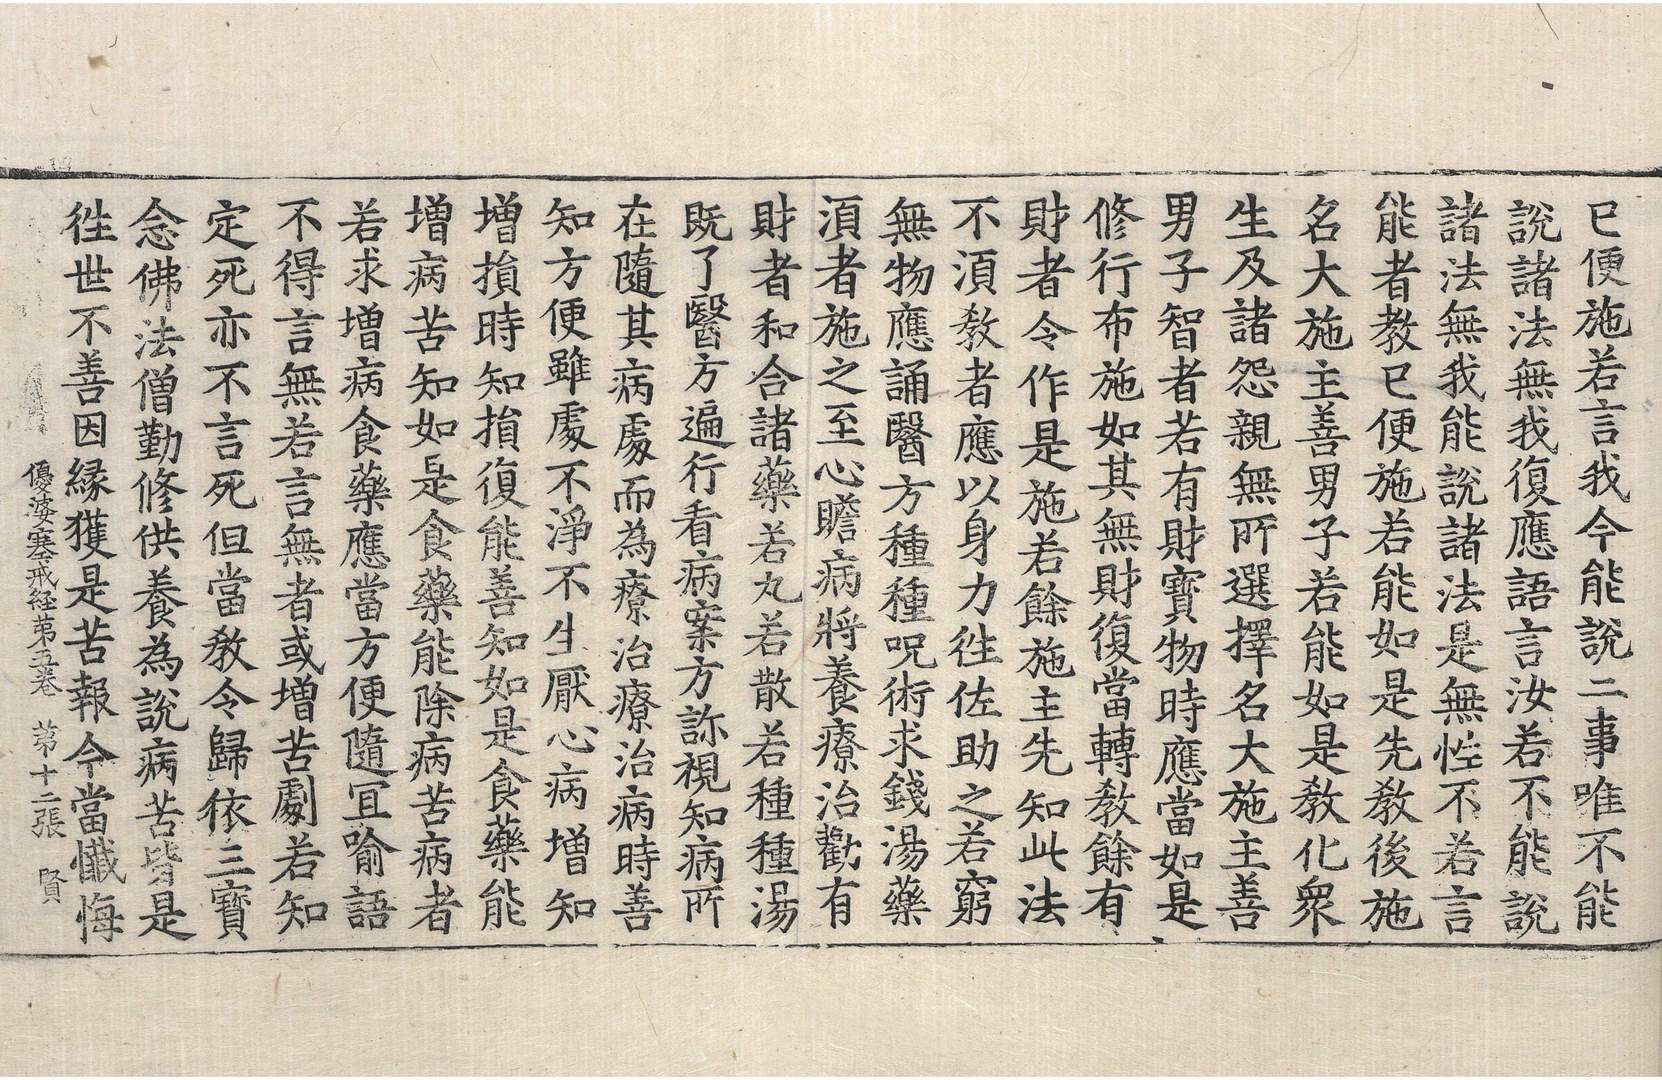 已便施若言我今能說二事唯不能
說諸法無我復應語言汝若不能說
諸法無我能說諸法是無性不若言
能者教已便施若能如是先教後施
名大施主善男子若能如是教化衆
生及諸怨親無所選擇名大施主善
男子智者若有財寶物時應當如是
修行布施如其無財復當轉教餘有
財者令作是施若餘施主先知此法
不湏教者應以身力徃佐助之若窮
無物應誦醫方種種呪術求錢湯藥
湏者施之至心瞻病將養療治勸有
財者和合諸藥若丸若散若種種湯
既了醫方遍行看病案方診視知病所
在隨其病處而為療治療治病時善
知方便雖處不淨不生厭心病增知
增損時知損復能善知如是食藥能
增病苦知如是食藥能除病苦病者
若求增病食藥應當方便隨冝喻語
不得言無若言無者或增苦劇若知
定死亦不言死但當教令歸依三寶
念佛法僧勤修供養為說病苦皆是
徃世不善因縁獲是苦報今當懺悔
優婆塞戒経第五卷　第十二張　賢